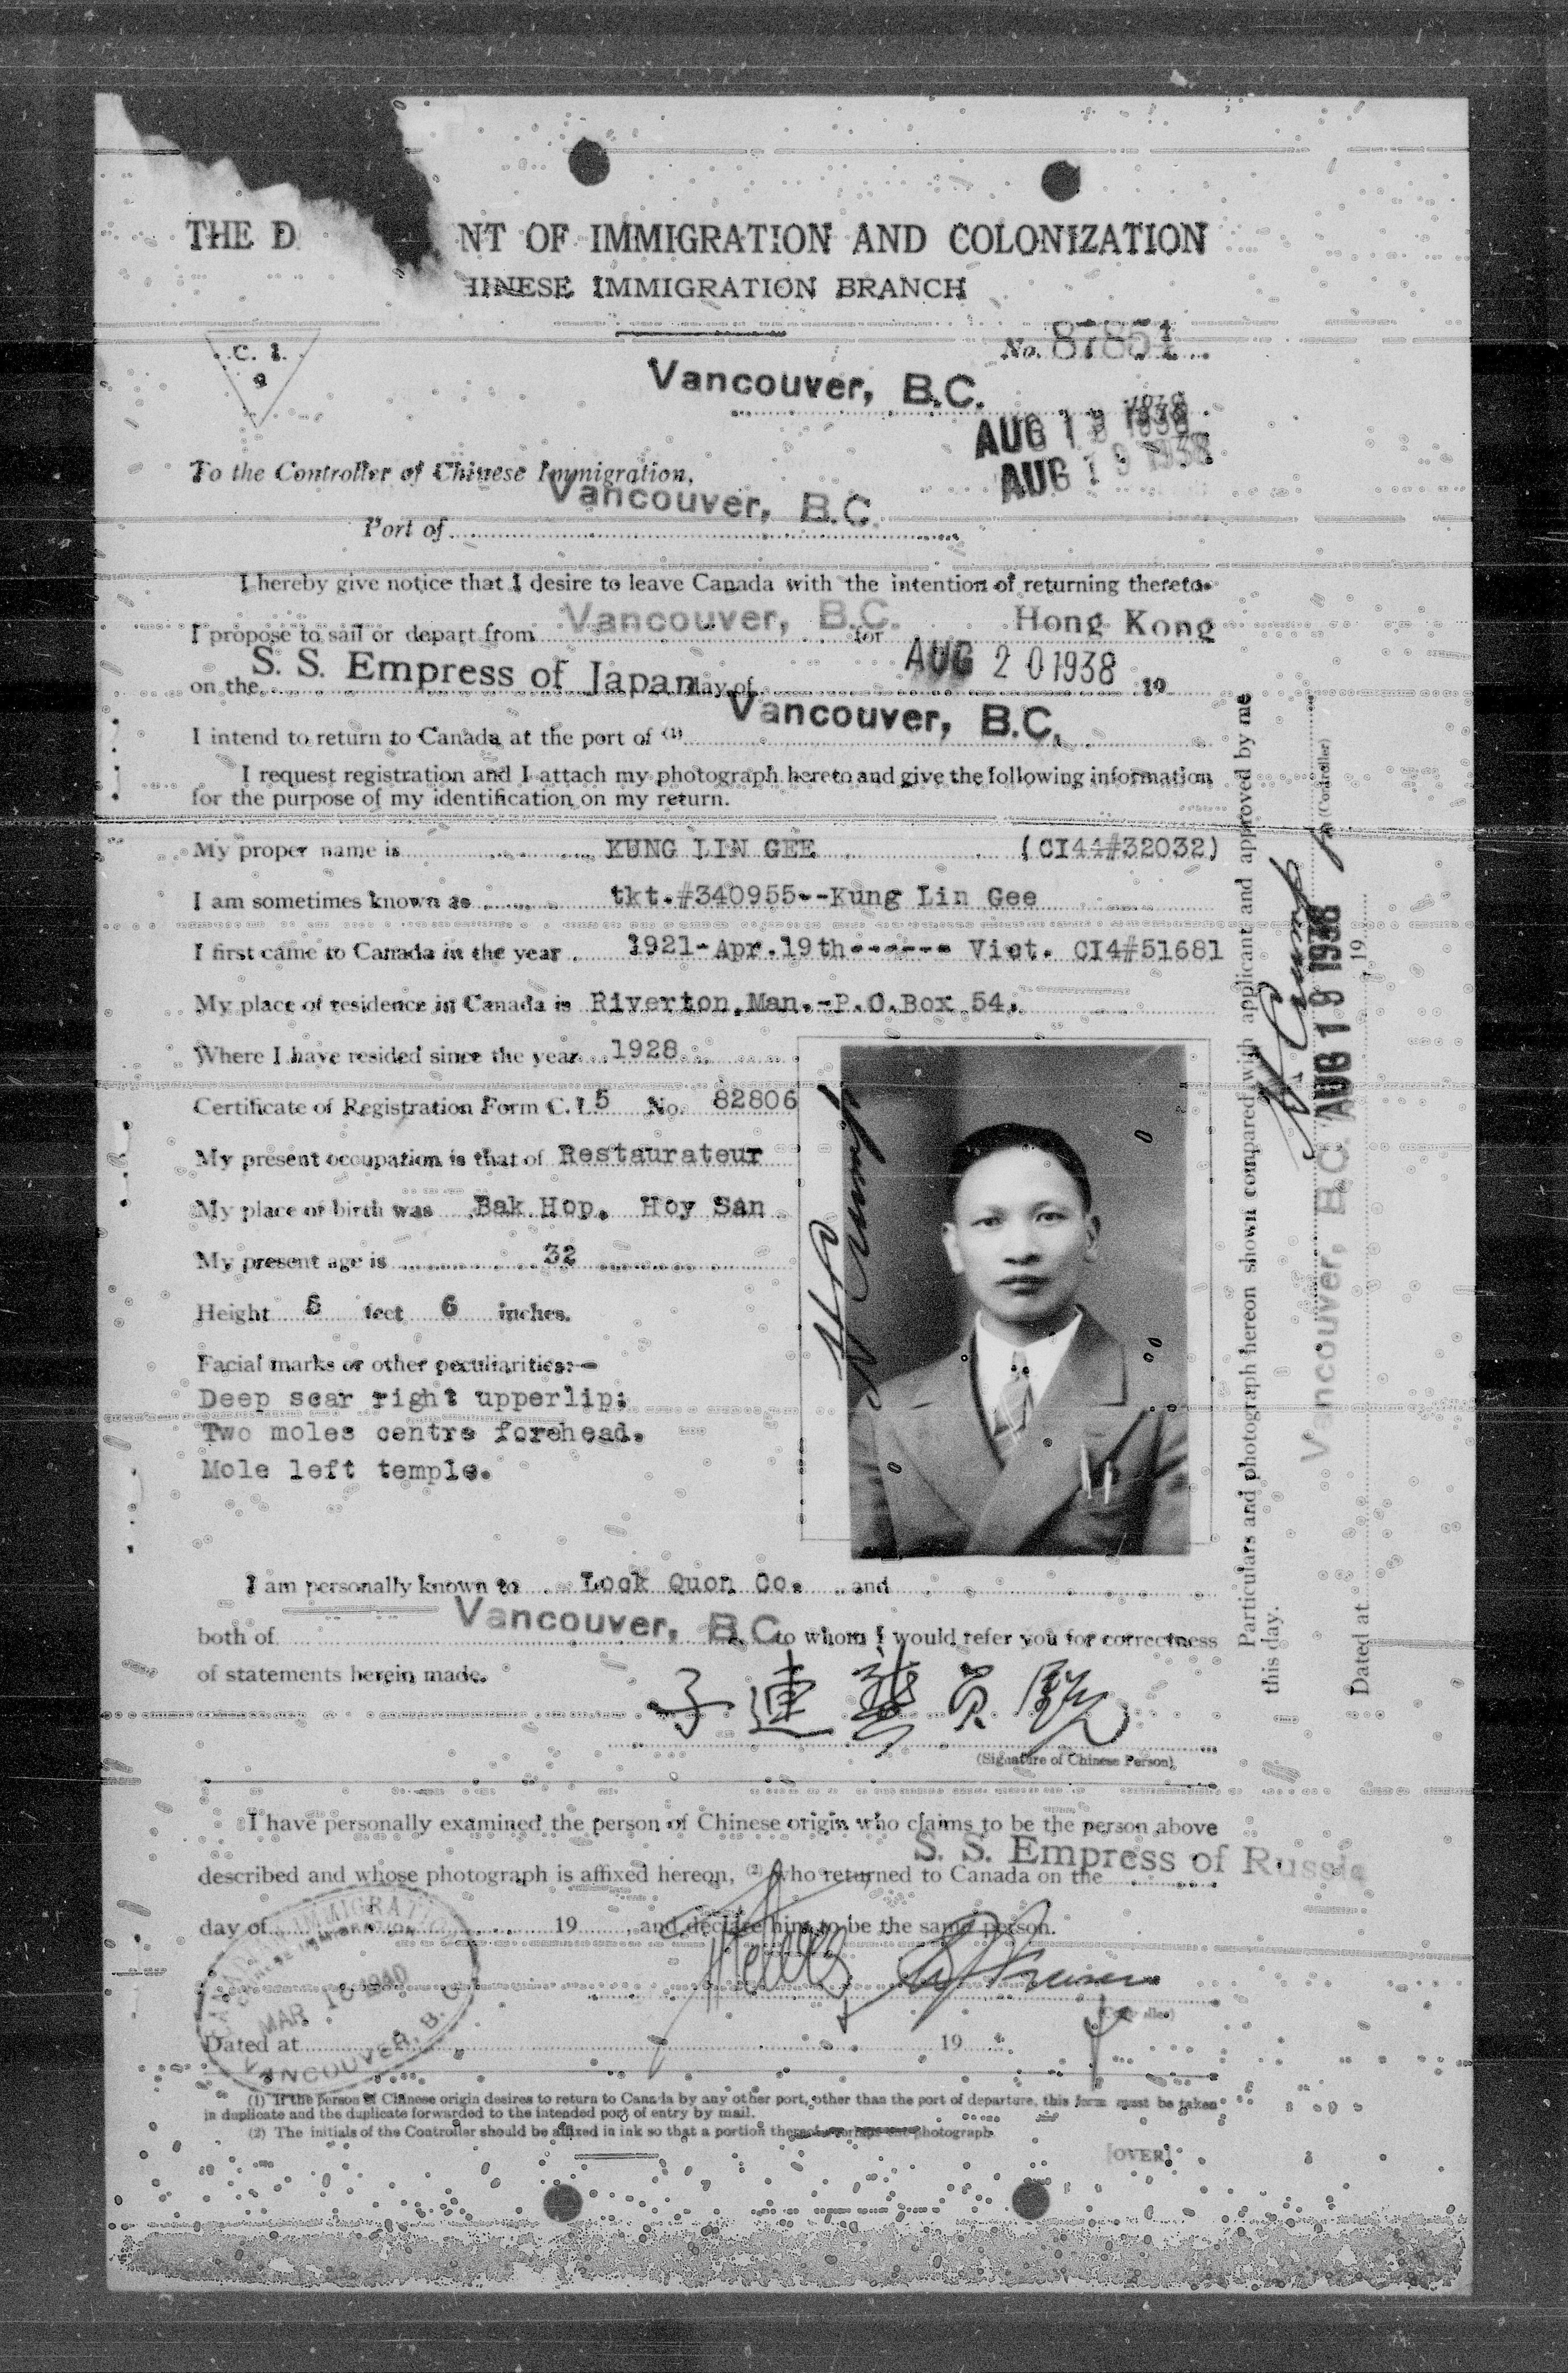 THE D NT OF IMMIGRATION AND COLONIZATION
HINESE IMMIGRATION BRANCH
C. I.
9
No. 87851
Vancouver, B.C.
AUG 19 1938
AUG 19 1938
To the Controller of Chinese Immigration,
Vancouver, B.C.
Port of
I hereby give notice that I desire to leave Canada with the intention of returning thereto.
I propose to sail or depart from Vancouver, B.C. for Hong Kong
on the S. S. Empress of Japan day of AUG 20 1938 19
I intend to return to Canada at the port of (1) Vancouver, B.C.
I request registration and I attach my photograph hereto and give the following information
for the purpose of my identification on my return.
My proper name is KUNG LIN GEE (CI44#32032)
I am sometimes known as tkt.#340955--Kung Lin Gee
I first came to Canada in the year 1921-Apr.19th------ Vict. CI4#51681
My place of residence in Canada is Riverton,Man.-P.O.Box 54.
Where I have resided since the year 1928
Certificate of Registration Form C.I. 5 No. 82806
My present occupation is that of Restaurateur
My place of birth was Bak Hop, Hoy San
My present age is 32
Height 5 feet 6 inches.
Facial marks or other peculiarities:—
Deep scar right upperlip;
Two moles centre forehead.
Mole left temple.
I am personally known to Lock Quon Co. and
both of Vancouver, B.C. to whom I would refer you for correctness
of statements herein made.
子連
(Signature of Chinese Person)
I have personally examined the person of Chinese origin who claims to be the person above
S. S. Empress of Russia
described and whose photograph is affixed hereon, (2) who returned to Canada on the
day of 19 , and declare him to be the same person.
MAR 16 1940
VANCOUVER, B. C.
(Controller)
Dated at 19
(1) If the person of Chinese origin desires to return to Canada by any other port, other than the port of departure, this form must be taken
in duplicate and the duplicate forwarded to the intended port of entry by mail.
(2) The initials of the Controller should be affixed in ink so that a portion thereof photograph
[OVER]
Particulars and photograph hereon shown compared with applicant and approved by me
this day.
(Controller)
Vancouver, B.C. AUG 19 1938
Dated at , 19